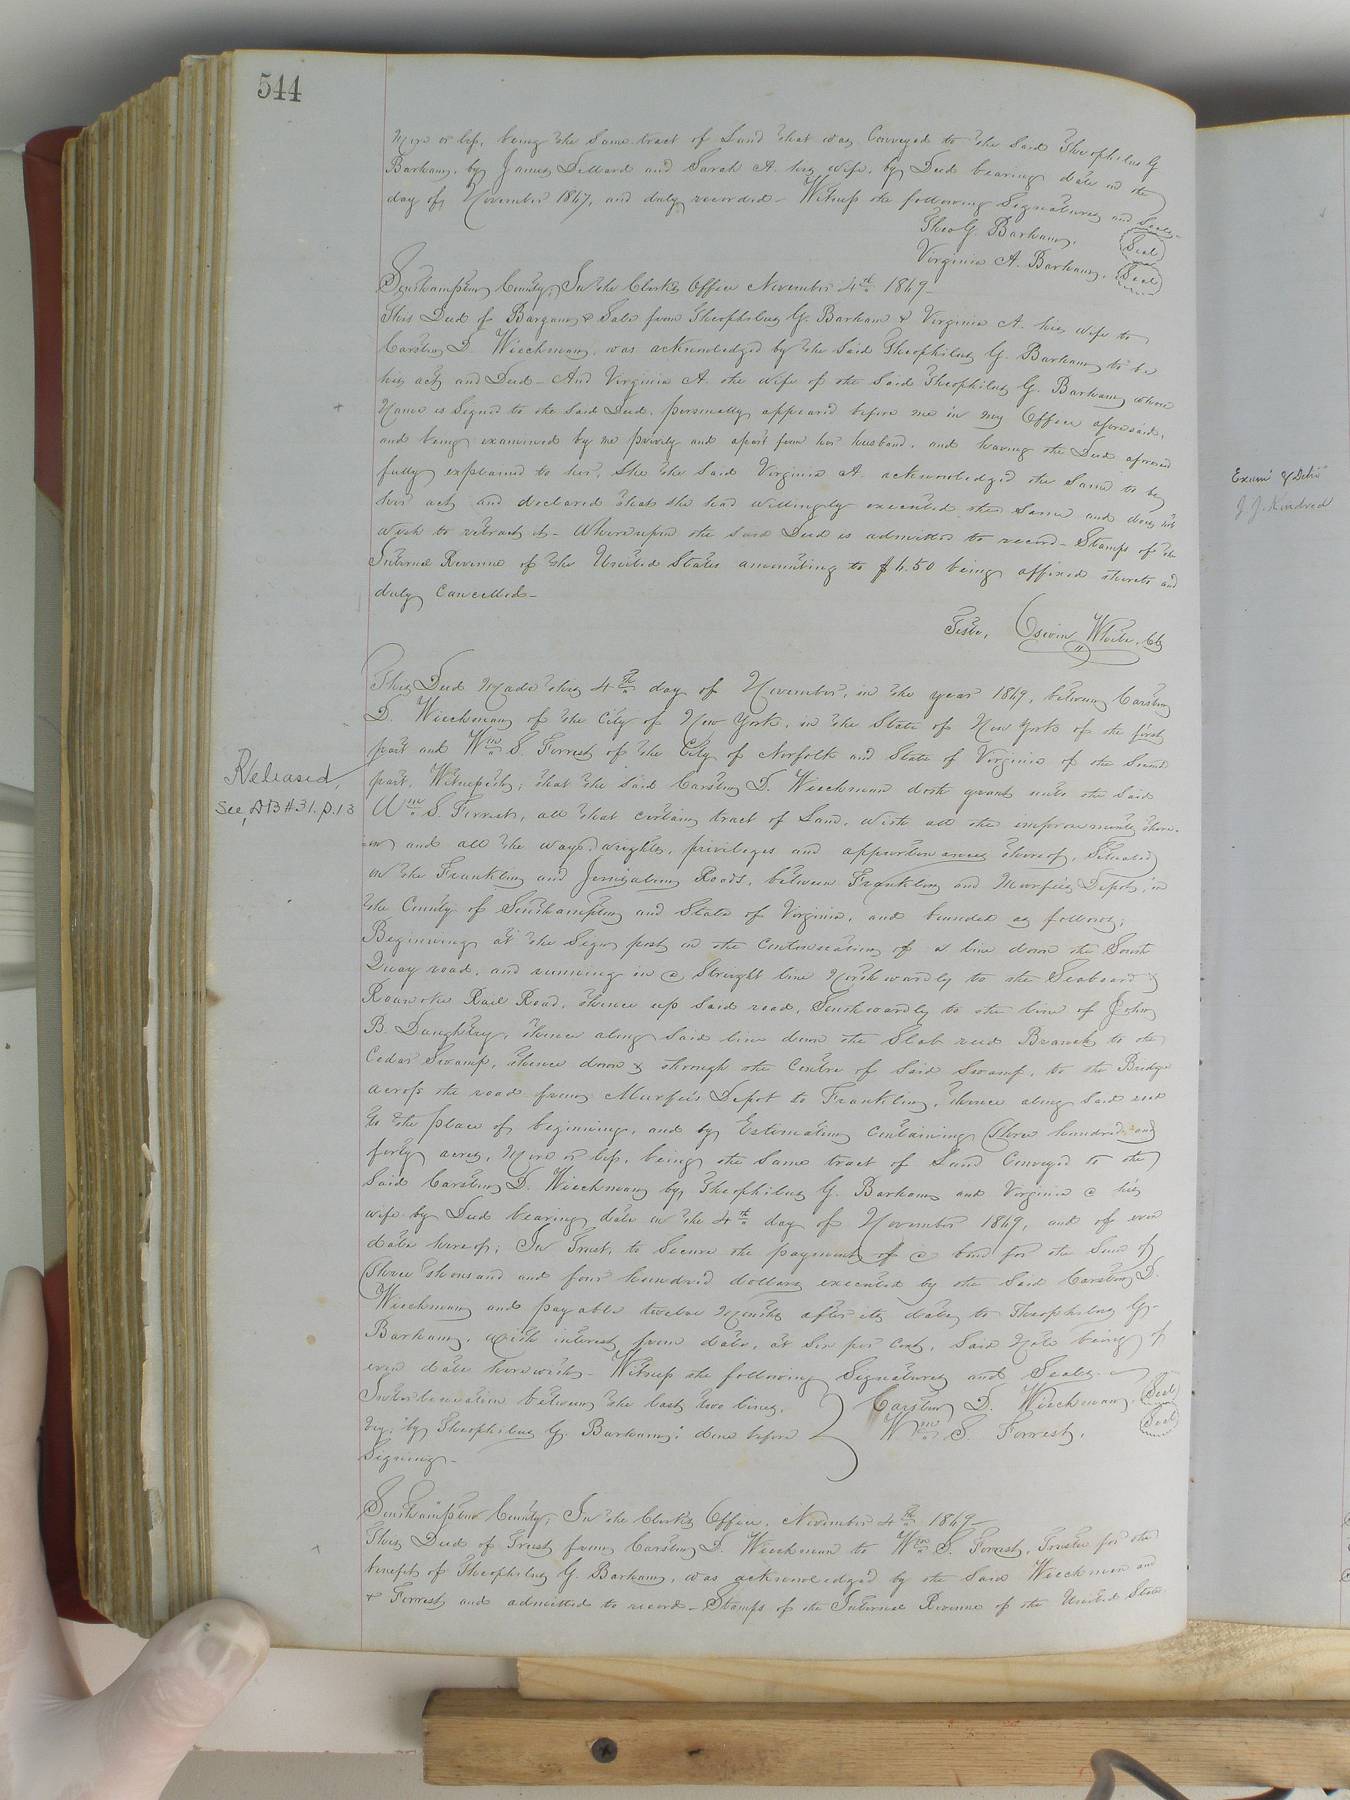 544
More or less, being the Same tract of Land that was Conveyed to the Said Theophilus G
Barham, by James Dillard and Sarah A. his wife, by Deed bearing date on the
day of November 1867, and duly recorded - Witness the following Signatures and Seals -
Theo G. Barham, (Seal)
Virginia A. Barham, (Seal)
Southampton County, In the Clerk's Office November 4th 1869 -
This Deed of Bargain & Sale from Theophilus G. Barham & Virginia A. his wife to
Carsten D. Wieckmann, was acknowledged by the Said Theophilus G. Barham to be
his act and Deed - And Virginia A. the wife of the Said Theophilus G. Barham, whose
Name is Signed to the Said Deed, personally appeared before me in my Office aforesaid,
and being examined by me privily and apart from her husband, and having the Deed aforesaid
fully explained to her, She the Said Virginia A. acknowledged the Same to be
her act, and declared that She had willingly executed the Same and does not
wish to retract it - Whereupon the Said Deed is admitted to record - Stamps of the
Internal Revenue of the United States amounting to $4.50 being affixed thereto and
duly Cancelled -
Teste, Edwin White, Clk
This Deed Made this 4th day of November, in the year 1869, between Carsten
D. Wieckmann of the City of New York, in the State of New York of the first
part and Wm S. Forrest of the City of Norfolk and State of Virginia of the Second
part, Witnesseth; that the Said Carsten D. Wieckmann doth grant unto the Said
Wm S. Forrest, all that certain tract of Land, with all the improvements there-
on and all the ways, rights, privileges and appurtenances thereof, Situated
on the Franklin and Jerusalem Roads, between Franklin and Murfee's Depot, in
the County of Southampton and State of Virginia, and bounded as follows;
Beginning at the Sign post in the Continuation of a line down the South
Quay road, and running in a Straight line Northwardly to the Seaboard &
Roanoke Rail Road, thence up Said road, Southwardly to the line of John
B. Daughtry, thence along Said line down the Slab reed Branch to the
Cedar Swamp, thence down & through the Centre of Said Swamp, to the Bridge
across the road from Murfee's Depot to Franklin, thence along Said road
to the place of beginning, and by Estimation Containing Three hundred and
forty acres, More or less, being the Same tract of Land Conveyed to the
Said Carsten D. Wieckmann by Theophilus G. Barham and Virginia a his
wife by Deed bearing date on the 4th day of November 1869, and of even
date hereof; In Trust, to Secure the payment of a bond for the Sum of
Three thousand and four hundred dollars executed by the Said Carsten D.
Wieckmann and payable twelve Months after its date, to Theophilus G.
Barham, with interest from date, at Six per Cent, Said Note being of
even date herewith - Witness the following Signatures and Seals -
Interlineation between the last two lines,
Viz, "by Theophilus G. Barham," done before
Signing -
Carsten D. Wieckmann, (Seal)
Wm S. Forrest, (Seal)
Southampton County, In the Clerk's Office, November 4th 1869 -
This Deed of Trust from Carsten D. Wieckmann to Wm S. Forrest, Trustee for the
benefit of Theophilus G. Barham, was acknowledged by the Said Wieckmann and
& Forrest and admitted to record - Stamps of the Internal Revenue of the United States
Released,
See, DB #31. p. 13
Exam'd & Del'd
J. J. Kindred